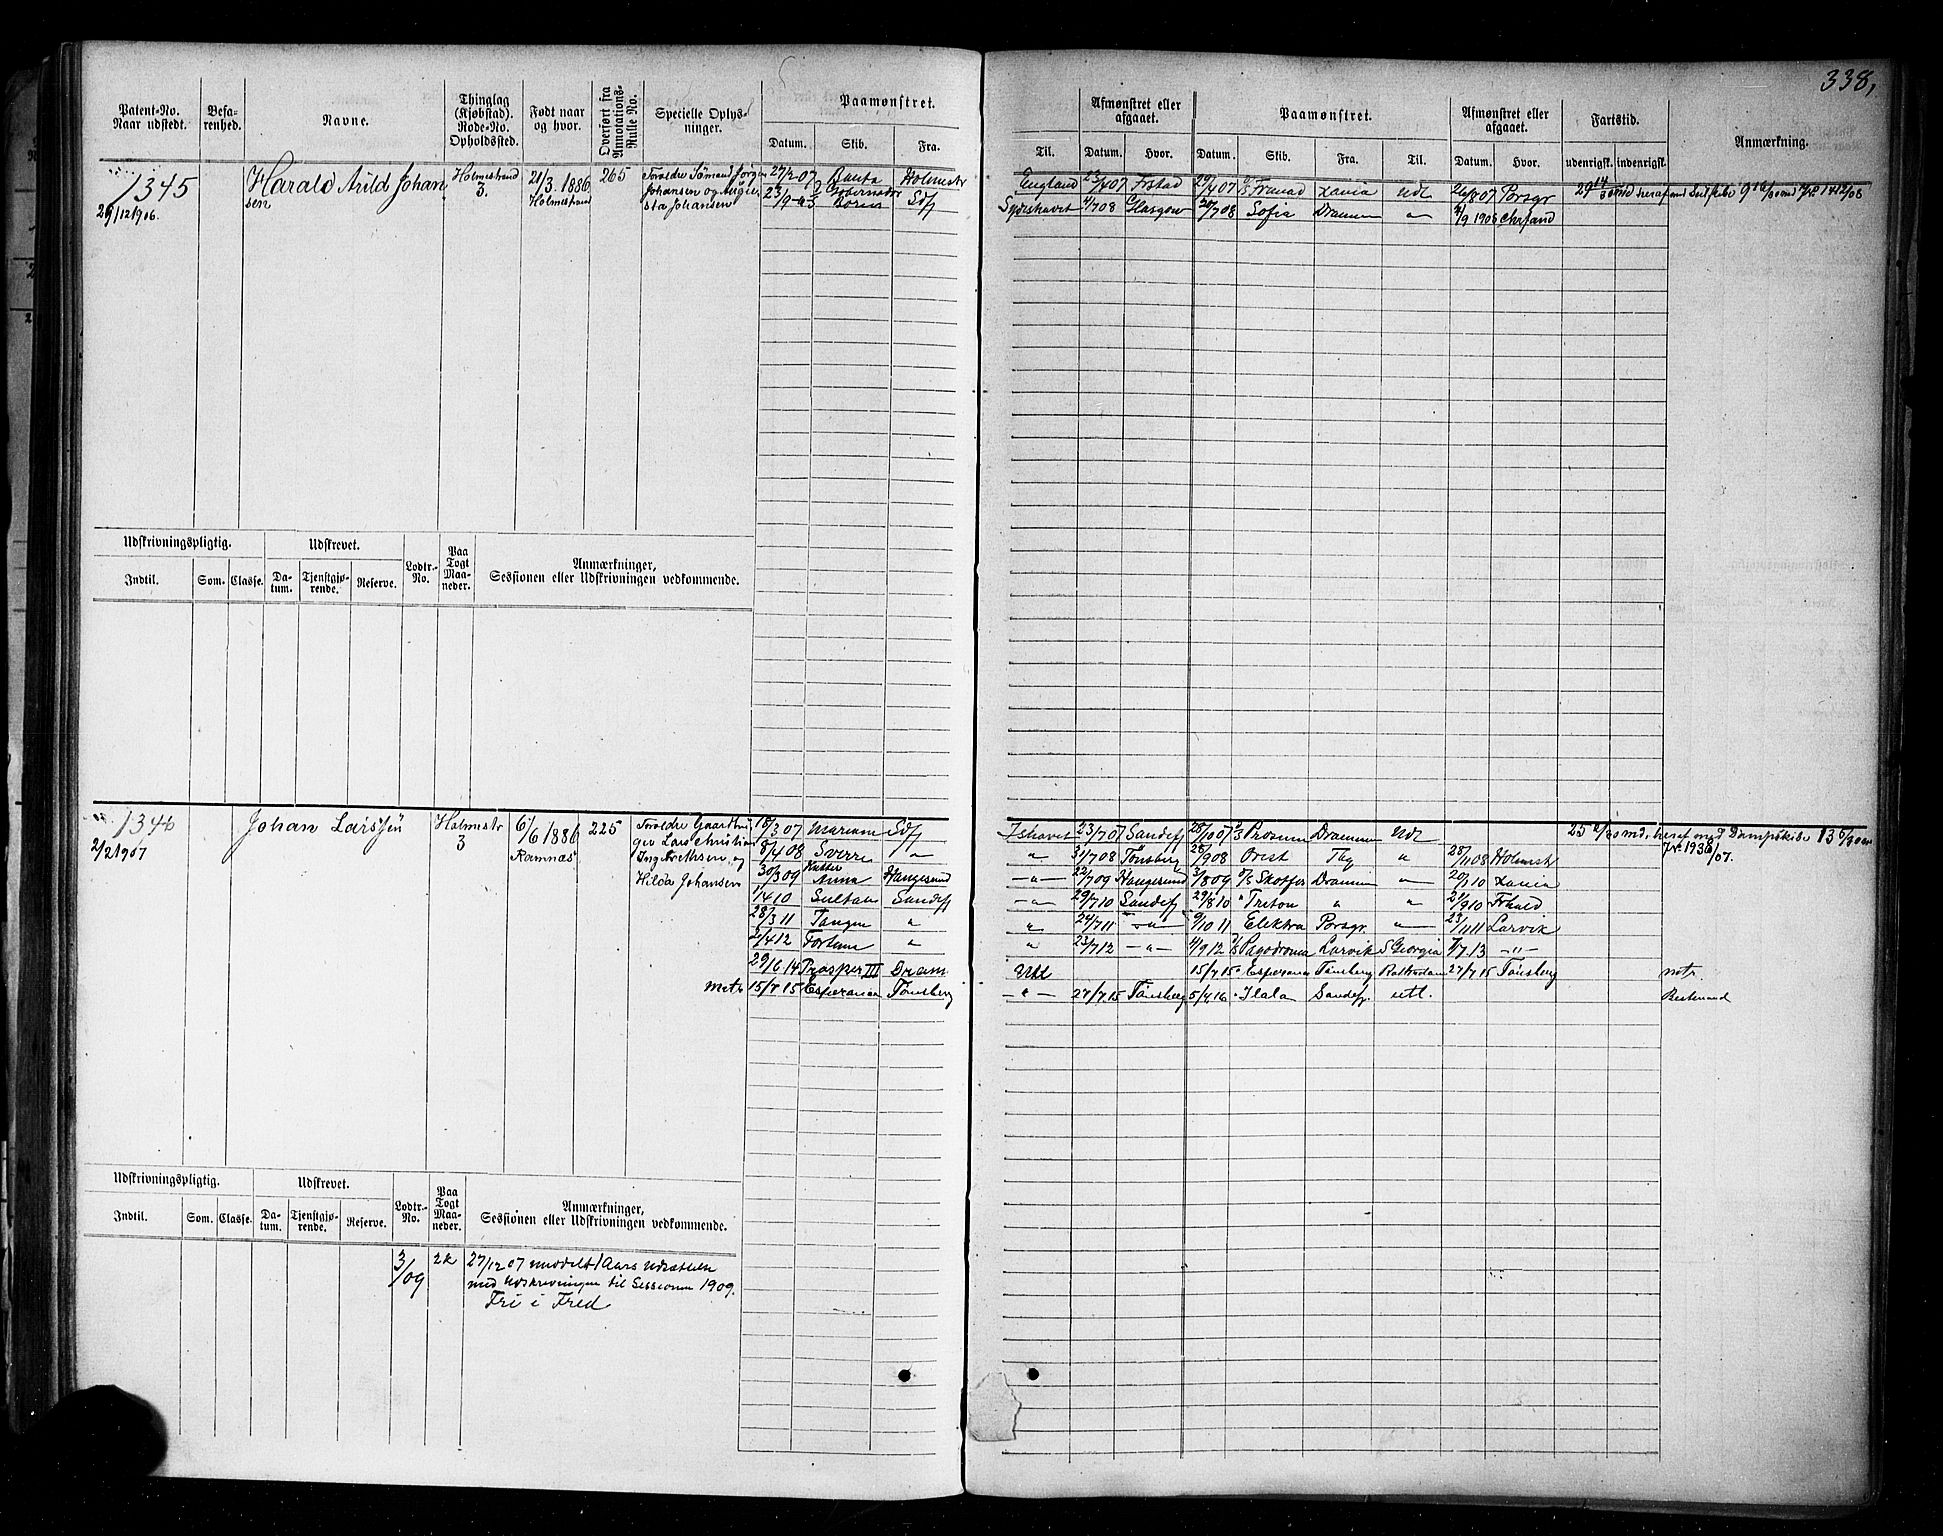 338,
Patent-No. Naar udstedt.
Befarenhed.
Navne.
Thinglag (Kjøbstad). Rode-No. Opholdssted.
Født naar og hvor.
Overført fra Annotations-Rulle No.
Specielle Oplysninger.
Paamønstret.
Datum. Skib. Fra.
Til.
Afmønstret eller afgaaet.
Datum. Hvor.
Paamønstret.
Datum. Skib. Fra. Til.
Afmønstret eller afgaaet.
Datum. Hvor.
Fartstid.
udenrigsk. indenrigsk.
Anmærkning.
1345
29/12 1906.
Harald Arild Johansen
Holmestrand
3.
21/3. 1886
Holmestrand
265
Forældre Sømand Jørgen
Johansen og Augusta Johansen
27/2 07 Holmestr
England 23/4 07 Frstad 29/4 07 Udl 26/8 07 Porsgr
Sydishavet 4/7 08 Glasgow 20/7 08 Sofia Drammen " 2/9 1908 Chrsand
Udskrivningspligtig.
Indtil. Som. Classe.
Udskrevet.
Datum. Tjenstgjørende. Reserve.
Lodtr.-No.
Paa Togt Maaneder.
Anmærkninger,
Sessionen eller Udskrivningen vedkommende.
1346
2/2 1907
Johan Larssen
Holmestr
3
6/6 1886
Ramnæs
225
Forældre Gaardbruger Lars Christian
Ingebrethsen og
Hilda Johansen
18/3 07 Mariane Sdfj Ishavet 23/7 07 Sandefj 28/10 07 Prosum Drammen Udl
8/4 08 Sverre " " 31/7 08 Tønsberg 28/9 08 Orest Tbg " 28/11 08 Holmestr
30/3 09 Kutter Anna Haugesund " 22/7 09 Haugesund 3/8 09 Skotfos Drammen " 20/1 10
1/4 10 Sultan Sandefj " 29/7 10 Sandefj 29/8 10 Triton " " 21/9 10 Frhald
28/3 11 Tangen " " 24/7 11 " 9/10 11 Elektra Porsgr. " 23/11 11 Larvik
2/4 12 Fortuna " " 23/7 12 " 4/9 12 Pagodroma Larvik S Georgia 7/7 13 "
29/6 14 Prosper III Dram Udl 15/7 15 Esperanza Tønsberg Rotterdam 27/7 15 Tønsberg matr.
Matr 15/7 15 Esperanza Tønsberg " 27/7 15 Tønsberg 5/4 16 Ilala Sandefj. utl. Bestmand
heraf med Dampskibe
Jr. 1936/07.
Udskrivningspligtig.
Indtil. Som. Classe.
Udskrevet.
Datum. Tjenstgjørende. Reserve.
Lodtr.-No.
Paa Togt Maaneder.
Anmærkninger,
Sessionen eller Udskrivningen vedkommende.
3/09
2k
27/12 07 meddelt 1 Aars Udsættelse
med Udskrivningen til Sessionen 1909.
Fri i Fred